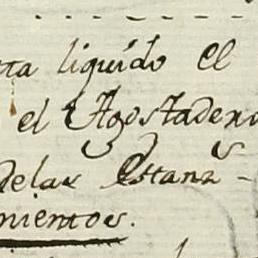 ta liquido el
el Agostadero
delas Estanz-
nientos.